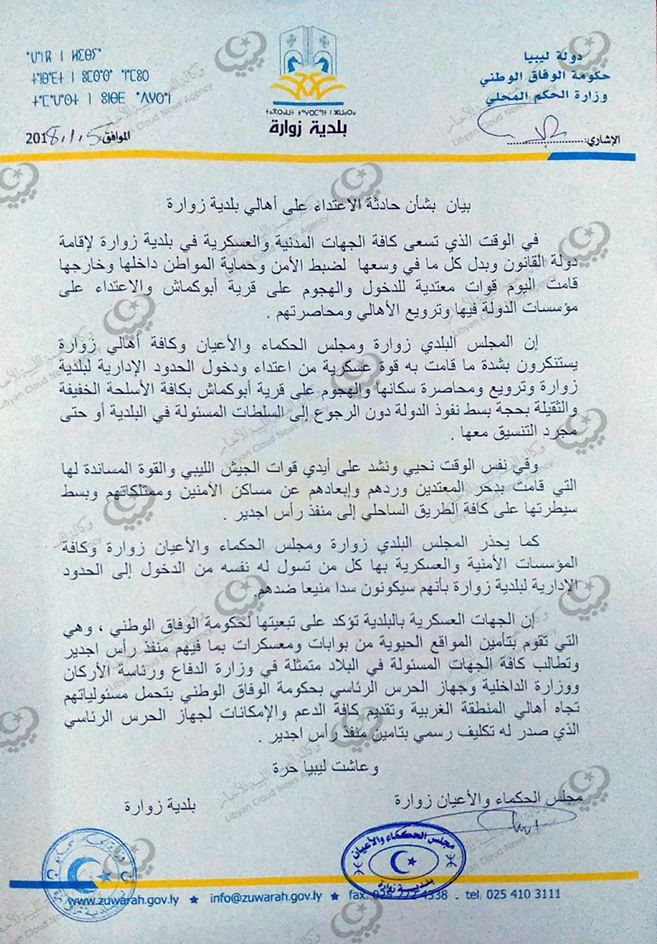 دولة ليبيا
حكومة الوفاق الوطني
وزارة الحكم المحلي
الإشاري:
بلدية زوارة
الموافق: 2018/1/5
بيان بشأن حادثة الاعتداء على أهالي بلدية زوارة
في الوقت الذي تسعى كافة الجهات المدنية والعسكرية في بلدية زوارة لإقامة
دولة القانون وبدل كل ما في وسعها لضبط الأمن وحماية المواطن داخلها وخارجها
قامت اليوم قوات معتدية للدخول والهجوم على قرية أبوكماش والاعتداء على
مؤسسات الدولة فيها وترويع الأهالي ومحاصرتهم .
إن المجلس البلدي زوارة ومجلس الحكماء والأعيان وكافة أهالي زوارة
يستنكرون بشدة ما قامت به قوة عسكرية من اعتداء ودخول الحدود الإدارية لبلدية
زوارة وترويع ومحاصرة سكانها والهجوم على قرية أبوكماش بكافة الأسلحة الخفيفة
والثقيلة بحجة بسط نفوذ الدولة دون الرجوع إلى السلطات المسئولة في البلدية أو حتى
مجرد التنسيق معها .
وفي نفس الوقت نحيي ونشد على أيدي قوات الجيش الليبي والقوة المساندة لها
التي قامت بدحر المعتدين وردهم وإبعادهم عن مساكن الأمنين وممتلكاتهم وبسط
سيطرتها على كافة الطريق الساحلي إلى منفذ رأس اجدير .
كما يحذر المجلس البلدي زوارة ومجلس الحكماء والأعيان زوارة وكافة
المؤسسات الأمنية والعسكرية بها كل من تسول له نفسه من الدخول إلى الحدود
الإدارية لبلدية زوارة بأنهم سيكونون سدا منيعا ضدهم.
إن الجهات العسكرية بالبلدية تؤكد على تبعيتها لحكومة الوفاق الوطني ، وهي
التي تقوم بتأمين المواقع الحيوية من بوابات ومعسكرات بما فيهم منفذ رأس اجدير
وتطالب كافة الجهات المسئولة في البلاد متمثلة في وزارة الدفاع ورئاسة الأركان
ووزارة الداخلية وجهاز الحرس الرئاسي بحكومة الوفاق الوطني بتحمل مسئولياتهم
تجاه أهالي المنطقة الغربية وتقديم كافة الدعم والإمكانات لجهاز الحرس الرئاسي
الذي صدر له تكليف رسمي بتامين منفذ رأس اجدير .
وعاشت ليبيا حرة
مجلس الحكماء والأعيان زوارة
بلدية زوارة
مجلس الحكماء والأعيان
بلدية زوارة
www.zuwarah.gov.ly ★ info@zuwarah.gov.ly ★ fax: 025 772 4338 . tel: 025 410 3111
Libyan Cloud News Agency